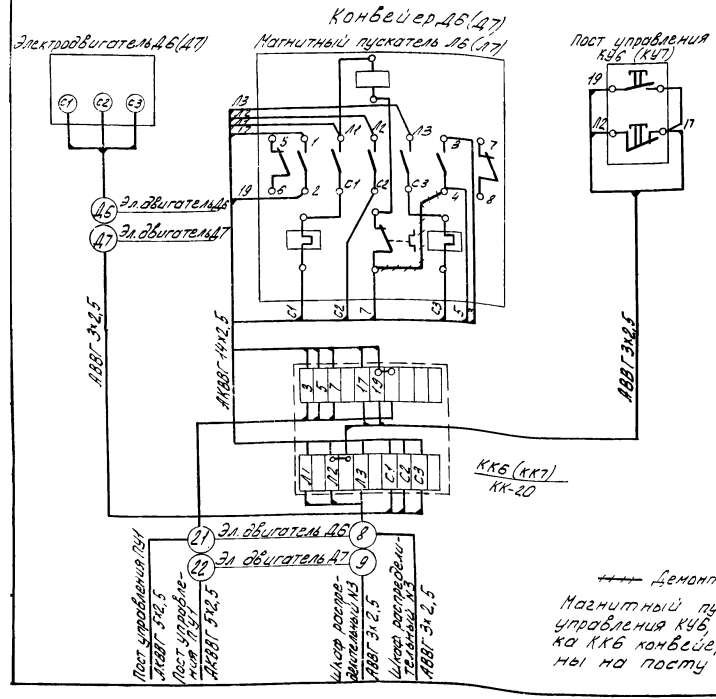 Конвейер Д6(Д7)
Электродвигатель Д6(Д7)
Магнитный пускатель Л6(Л7)
Пост управления
КУ6 (КУ7)
С1 С2 С3
Л3
Л2
Л1
17
19
5 1 Л1 Л2 Л3 3 7
6 2 С1 С2 С3 4 8
19
Л2
17
Д6 Эл.двигатель Д6
Д7 Эл.двигатель Д7
С1 С2 7 С3 5
АВВГ 3х2,5
АКВВГ 14х2,5
АВВГ 3х2,5
3 5 7 17 19
Л1 Л2 Л3 С1 С2 С3
КК6 (КК7)
КК-20
21 Эл. двигатель Д6 8
22 Эл. двигатель Д7 9
Пост управления ПУ1
АКВВГ 5х2,5
Пост управле-
ния ПУ1
АКВВГ 5х2,5
Шкаф распре-
делительный №3
АВВГ 3х2,5
Шкаф распредели-
тельный №3
АВВГ 3х2,5
Демонт
Магнитный пу
управления КУ6,
ка КК6 конвейе
ны на посту